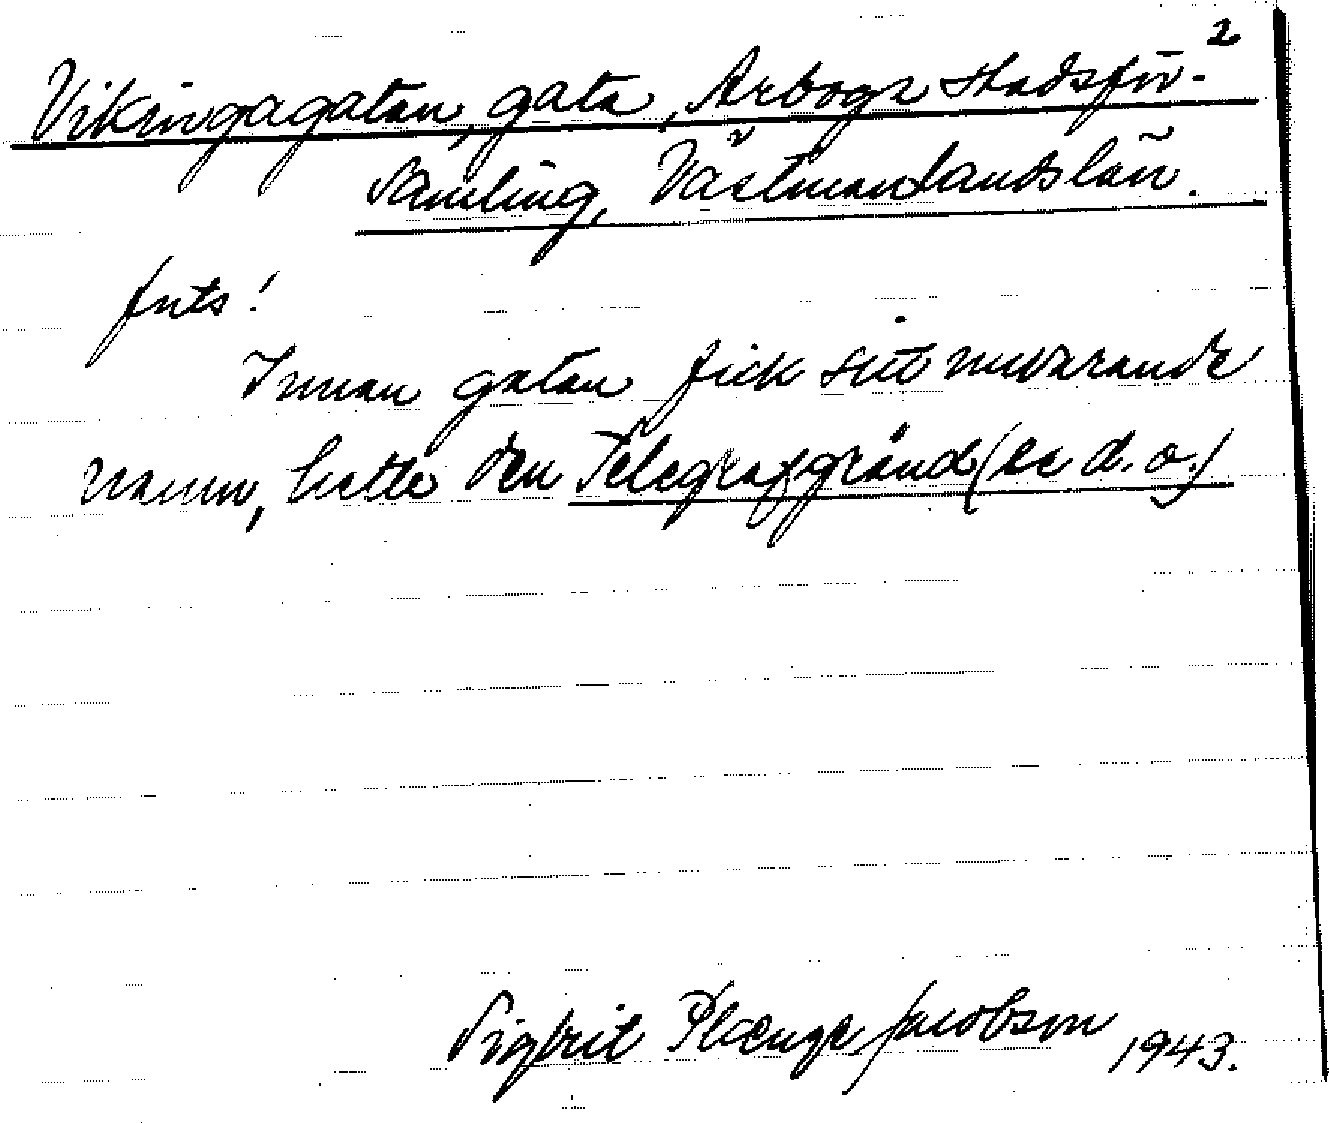 2
Vikingagatan, gata, Arboga stadsför-
samling, Västmanlands län.
forts!
Innan gatan fick sitt nuvarande
namn, hette den Telegrafgränd (se d. o.)
Sigfrid Plænge Jacobson 1943.